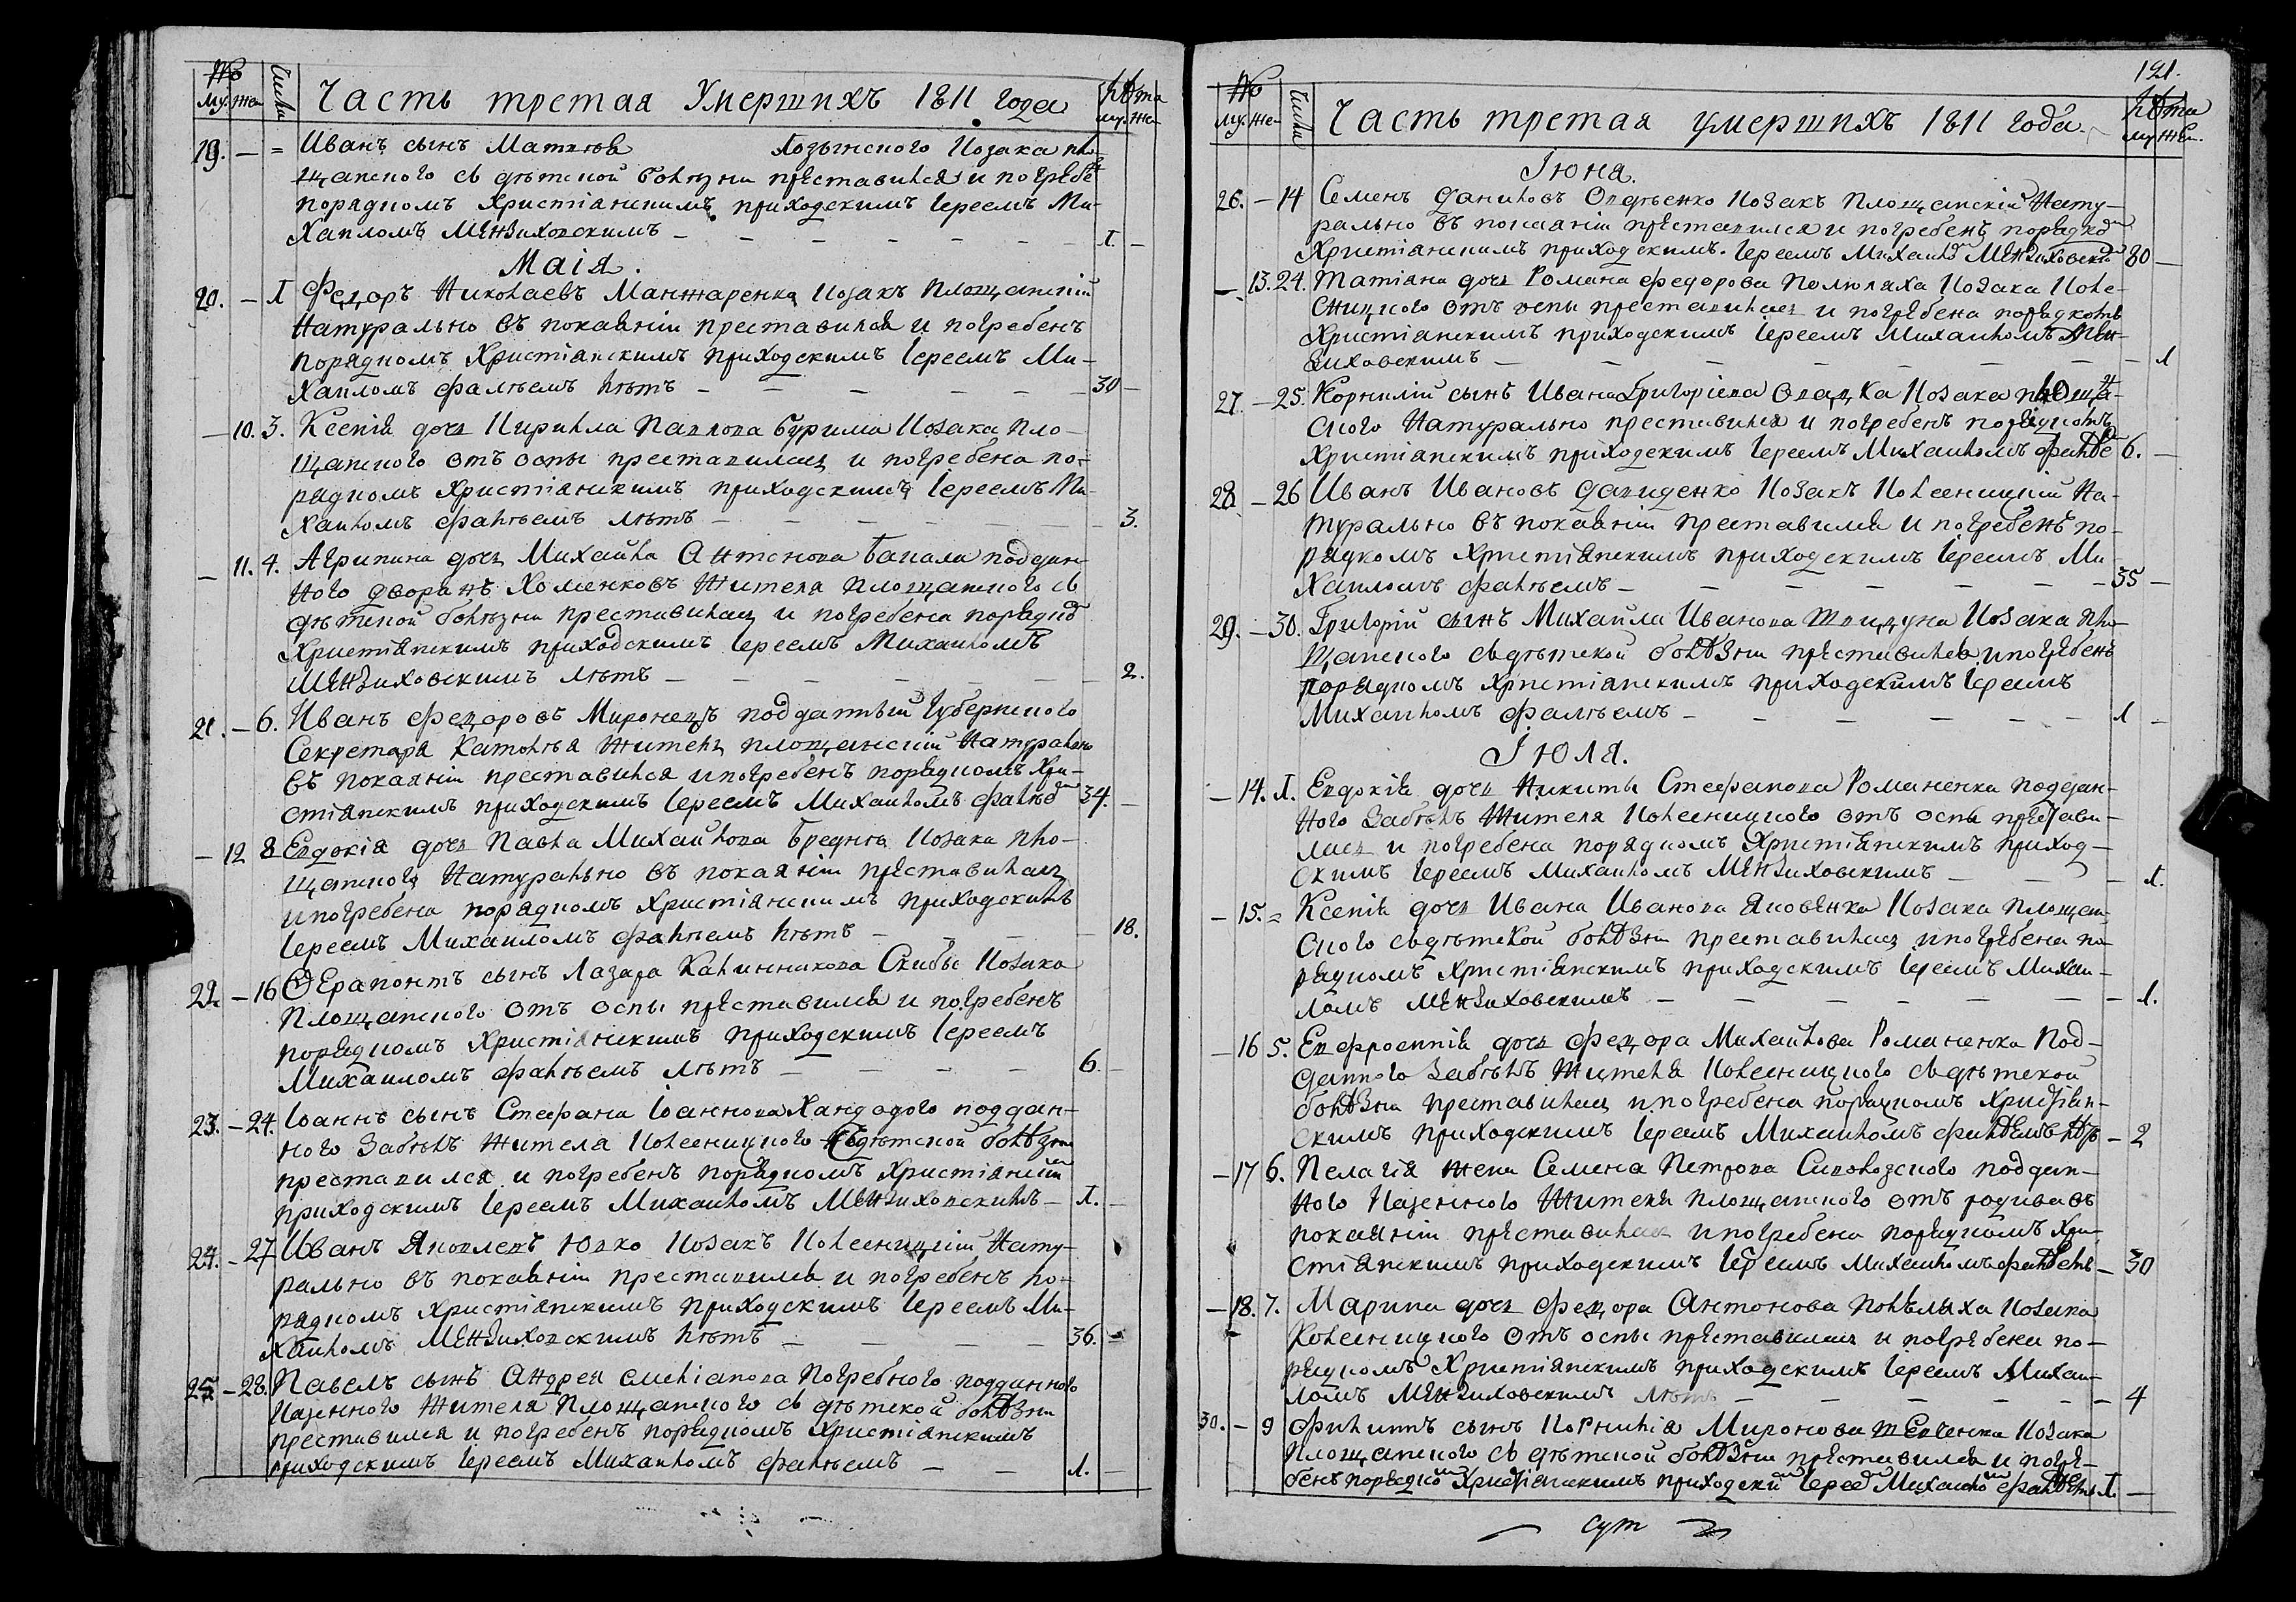 №
му. же.
Числа
Часть третая Умершихъ 1811 года
Лѣта
му. же.
19. — = Иванъ сынъ Матвѣя Лозынского Козака пло-
щанского съ дѣтской болѣзни преставился и погребе
порядкомъ христіанскимъ приходскимъ Іереемъ Ми-
хаиломъ Мензиховскимъ — 1. —
Маія.
20. — 1 Федоръ Николаевъ Манжаренко Козакъ Площанскій
Натурально въ покаяніи преставился и погребенъ
порядкомъ Христіанскимъ приходскимъ Іереемъ Ми-
хаиломъ Фалѣемъ лѣтъ — 30 —
— 10. 3. Ксенія дочь Кирилла Павлова Бурима Козака Пло-
щанского отъ оспы преставилась и погребена по-
рядкомъ Христіанскимъ приходскимъ Іереемъ Ми-
хаиломъ Фалѣемъ лѣтъ — 3.
— 11. 4. Агрипина дочь Михайла Антонова Бакала поддан-
ного дворянъ Хоменковъ Жителя Площанского съ
дѣтской болѣзни преставилась и погребена порядко
Христіанскимъ приходскимъ Іереемъ Михаиломъ
Мензиховскимъ лѣтъ — 2.
21. — 6. Иванъ Федоровъ Миронецъ подданный Губернского
Секретаря Жителъ площанскій Натурально
въ покаяніи преставился и погребенъ порядкомъ Хри-
стіанскимъ приходскимъ Іереемъ Михаиломъ Фалѣе 34. —
— 12 8 Евдокія дочь Павла Михайлова Бреднѣ Козака пло-
щанского Натурально въ покаяніи преставилась
и погребена порядкомъ Христіанскимъ приходскимъ
Іереемъ Михаиломъ Фалѣемъ лѣтъ — 18.
22. — 16 Ѳерапонтъ сынъ Лазара Калинникова Скибы Козака
Площанского отъ оспы преставился и погребенъ
порядкомъ Христіанскимъ приходскимъ Іереемъ
Михаиломъ Фалѣемъ лѣтъ — 6. —
23. — 24. Іоаннъ сынъ Стефана Іоаннова Хандодого поддан-
ного Забѣлъ жителя Колесницкого съ дѣтской болѣзни
преставился и погребенъ порядкомъ Христіански
приходскимъ Іереемъ Михаиломъ Мензиховскимъ — 1. —
24. — 27 Иванъ Яковлевъ Юпко Козакъ Колесницкій Нату-
рально въ покаяніи преставился и погребенъ по-
рядкомъ Христіанскимъ приходскимъ Іереемъ Ми-
хаиломъ Мензиховскимъ лѣтъ — 36. —
25. — 28. Павелъ сынъ Андрея Погребного подданного
Казенного Жителя Площанского съ дѣтской болѣзни
преставился и погребенъ порядкомъ Христіанскимъ
приходскимъ Іереемъ Михаиломъ Фалѣемъ — 1. —
121.
№
му. же.
Числа
Часть третая умершихъ 1811 года.
Лѣта
му. же.
Іюня.
26. — 14 Семенъ Даниловъ Козакъ Площанскій Нату-
рально въ покаяніи преставился и погребенъ порядко
Христіанскимъ приходскимъ Іереемъ Михаило Мензиховски 80 —
— 13. 24. Татіана дочь Романа Федорова Полюляха Козака Коле-
сницкого отъ оспы преставилась и погребена порядкомъ
Христіанскимъ приходскимъ Іереемъ Михаиломъ Мен-
зиховскимъ — 1
27. — 25. Корнилій сынъ Ивана Григоріева Козака площан-
ского Натурально преставился и погребенъ порядкомъ
Христіанскимъ приходскимъ Іереемъ Михаиломъ Фалѣе 6. —
28 — 26 Иванъ Ивановъ Давиденко Козакъ Колесницкій На-
турально въ покаяніи преставился и погребенъ по-
рядкомъ Христіанскимъ приходскимъ Іереемъ Ми-
хаиломъ Фалѣемъ — 35 —
29. — 30. Григорій сынъ Михайла Иванова Козака пло-
щанского съ дѣтской болѣзни преставился и погребенъ
порядкомъ Христіанскимъ приходскимъ Іереемъ
Михаиломъ Фалѣемъ — 1 —
Іюля.
— 14. 1. Евдокія дочь Никиты Стефанова Романенка поддан-
ного Забѣлъ Жителя Колесницкого отъ оспы престави-
лась и погребена порядкомъ Христіанскимъ приход-
скимъ Іереемъ Михаиломъ Мензиховскимъ — 1.
— 15. = Ксенія дочь Ивана Иванова Яковенка Козака Площан-
ского съ дѣтской болѣзни преставилась и погребена по-
рядкомъ Христіанскимъ приходскимъ Іереемъ Михаи-
ломъ Мензиховскимъ — 1.
— 16 5. Евфросинія дочь Федора Михайлова Романенка Под-
данного Забѣлъ Жителя Колесницкого съ дѣтской
болѣзни преставилась и погребена порядкомъ Христіан-
скимъ приходскимъ Іереемъ Михаиломъ Фалѣемъ лѣтъ — 2
— 17 6. Пелагія жена Семена Петрова поддан-
ного Казенного Жителя площанского отъ родива въ
покаяніи преставилась и погребена порядкомъ Хри-
стіанскимъ приходскимъ Іереемъ Михаиломъ Фалѣемъ — 30
— 18. 7. Марина дочь Федора Антонова Полѣляха Козака
Колесницкого отъ оспы преставилась и погребена по-
рядкомъ Христіанскимъ приходскимъ Іереемъ Михаи-
ломъ Мензиховскимъ лѣтъ — 4
30. — 9 Филиппъ сынъ Корнилія Миронова Шевченка Козака
Площанского съ дѣтской болѣзни преставился и погре-
бенъ порядко Христіанскимъ приходски Іерее Михаило Фалѣемъ 1. —
сут